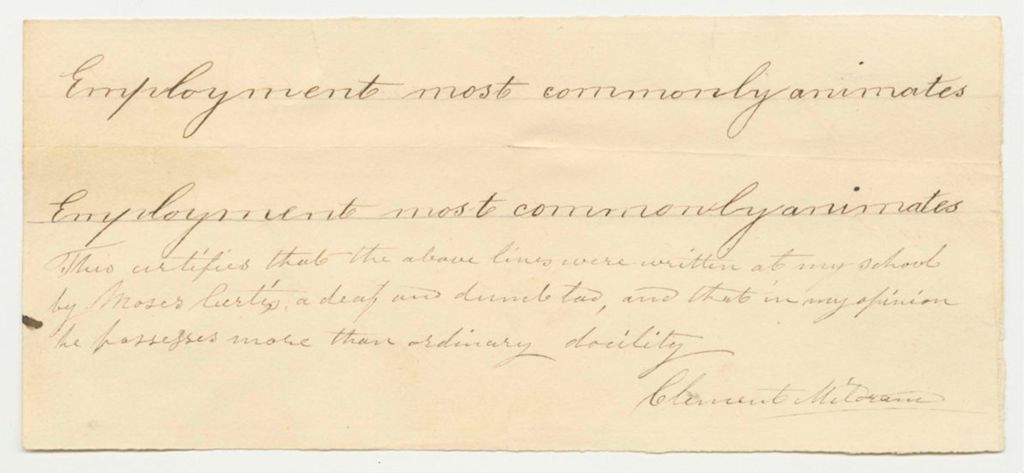 Employment most commonly animates
Employment most commonly animates
This certifies that the above lines were written at my school
by Moses a deaf and dumb lad, and that in my opinion
he possesses more than ordinary docility
Clement